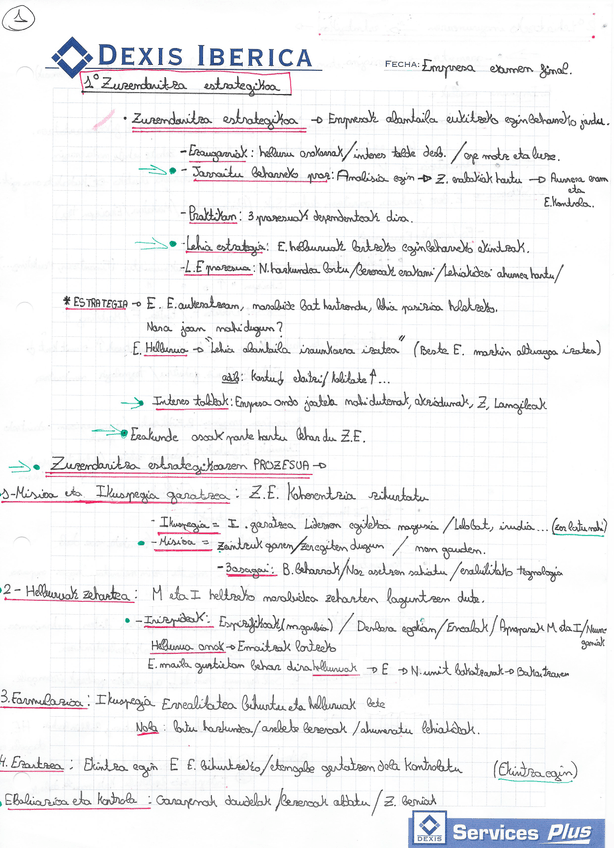 1
DEXIS IBERICA
FECHA: Empresa examen final.
1º Zuzendaritza estrategikoa
• Zuzendaritza estrategikoa → Empresak abantaila eukitzeko egin beharreko jard.
- Ezaugarriak: helburu orokorrak/interes talde desb. / epe motz eta luze.
- Jarraitu beharreko proz: Analisia egin → Z. erabakiak hartu → Aurrera eram
eta
E.kontrola.
- Praktikan: 3 prozesuak dependenteak dira.
- Lehia estrategia: E. helburuak lortzeko egin beharreko ekintzak.
- L.E prozesua: N. hazkundea lortu/Bezeroak erakarri/Lehiakideei aurrea hartu/
* ESTRATEGIA → E. E. aukeratzean, norabide bat hartzendu, lehia posizioa hobetzeko.
Nora joan nahi dugun?
E. Helburua → "Lehia abantaila iraunkorra izatea" (Beste E. markin altuagoa izatea)
adib: Kostu↓ ekoitzi/kalitate ↑...
→ Interes taldeak: Empresa ondo joatea nahi dutenak, akziodunak, Z, Langileak
Erakunde osoak parte hartu behar du Z.E.
Zuzendaritza estrategikoaren PROZESUA →
1-Misioa eta Ikuspegia garatzea: Z.E. Koherentzia ziurtatu
- Ikuspegia = I. garatzea Lideson egiteko nagusia / Lelobat, irudia... (zer lortu nahi)
- Misioa = zeintzuk garen/zer egiten dugun / non gauden.
- 3 osagai: B. beharrak/Nor asetzen saiatu / erabilitako teknologia
2- Helburuak zehaztea: M eta I heltzeko norabidea zehazten laguntzen dute.
- Irizpideak: Espezifikoak / Denbora / Errealak / Aproposak M eta I/
Helburua onak → Emaitzak lortzeko
E. maila guztietan behar dira helburuak → E → N. unit bakoitzarak → Bakoitzaren
3. Formulazioa: Ikuspegia Errealitatea bihurtu eta helburuak bete
Nola: lortu hazkundea/asebete bezeroak /aurreratu lehiakideak.
4. Ezartzea: Ekintza egin E E. bihurtzeko/etengabe gertatzen dela kontrolatu (Ekintza egin)
Ebaluazioa eta kontrola: Garapenak daudelako/Bezeroak aldatu / Z. berriak
DEXIS Services Plus